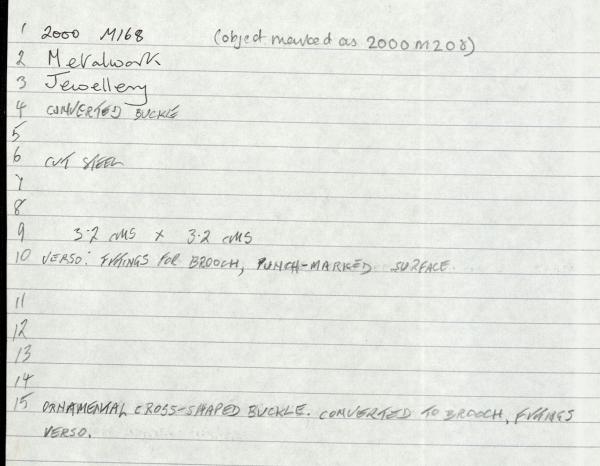 1 2000 M168 (object marked as 2000 M208)
2 Metalwork
3 Jewellery
4 CONVERTED BUCKLE
5
6 CUT STEEL
7
8
9 3.2 cMS x 3.2 cMS
10 VERSO: FITTINGS FOR BROOCH, PUNCH-MARKED SURFACE.
11
12
13
14
15 ORNAMENTAL CROSS-SHAPED BUCKLE. CONVERTED TO BROOCH, FITTINGS
VERSO.